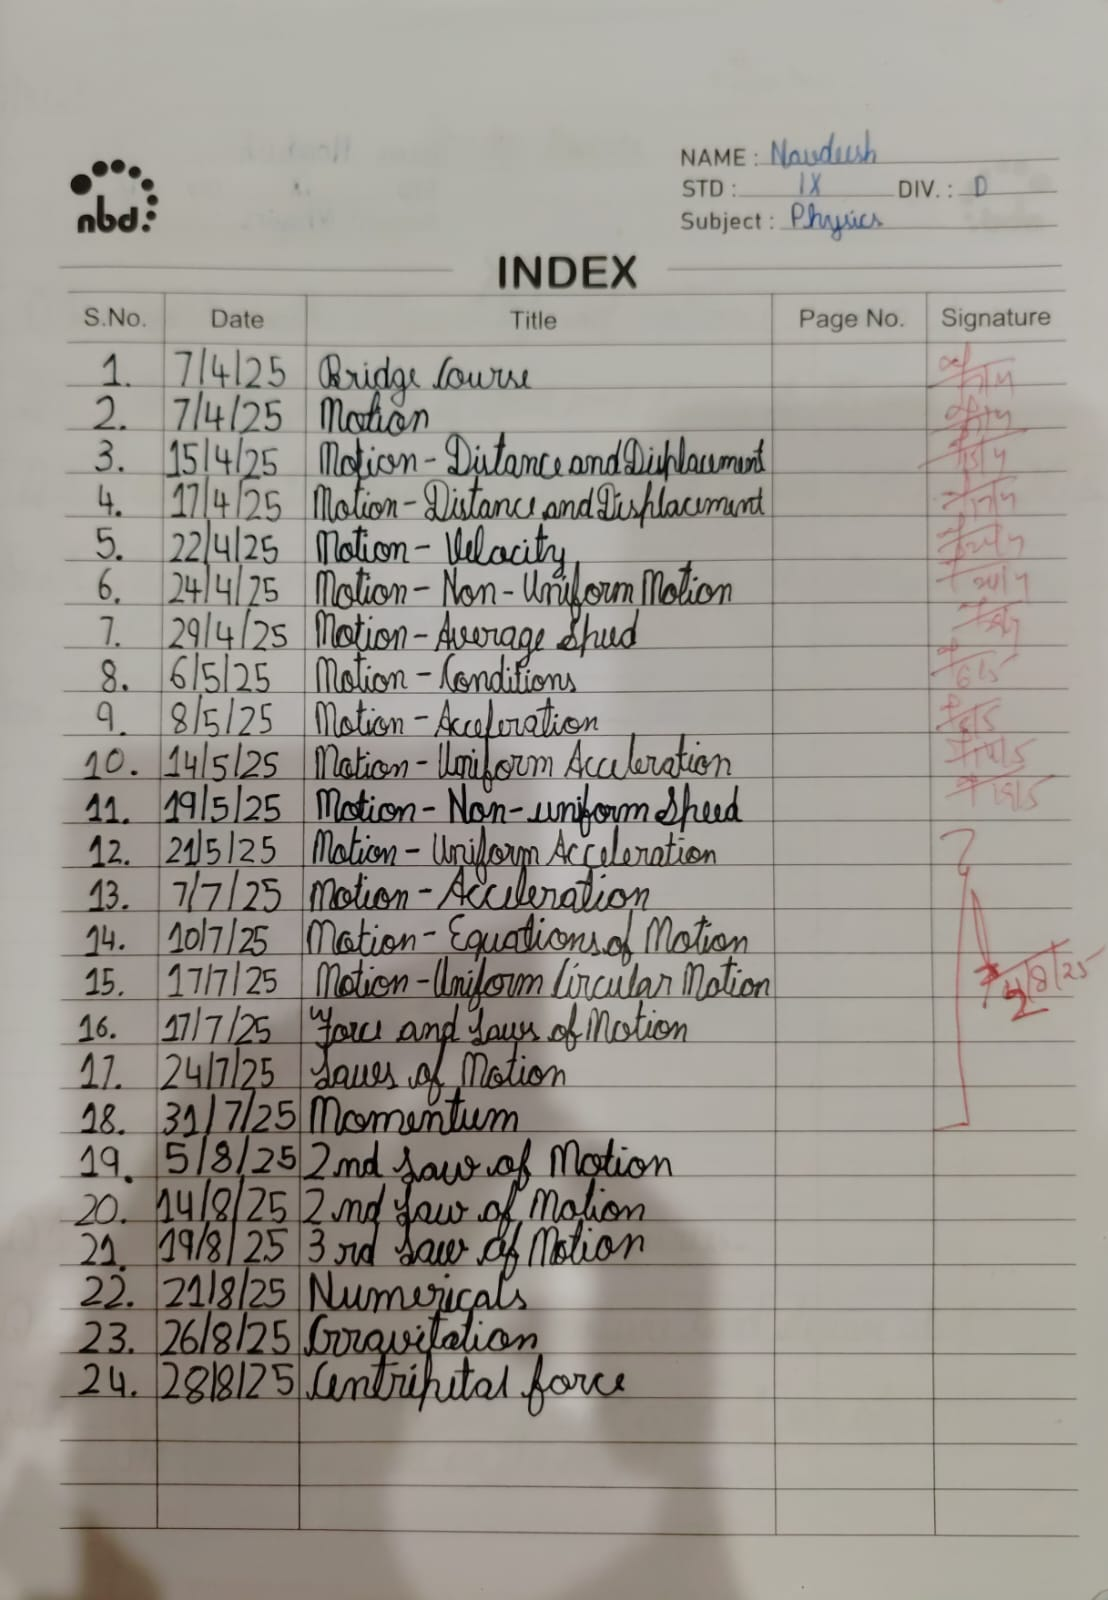 nbd.
NAME : Navdeesh
STD : IX DIV. : D
Subject : Physics
INDEX
S.No. Date Title Page No. Signature
1. 7/4/25 Bridge Course
2. 7/4/25 Motion
3. 15/4/25 Motion - Distance and Displacement
4. 17/4/25 Motion - Distance and Displacement
5. 22/4/25 Motion - Velocity
6. 24/4/25 Motion - Non - Uniform Motion
7. 29/4/25 Motion - Average Speed
8. 6/5/25 Motion - Conditions
9. 8/5/25 Motion - Acceleration
10. 14/5/25 Motion - Uniform Acceleration
11. 19/5/25 Motion - Non-uniform Speed
12. 21/5/25 Motion - Uniform Acceleration
13. 7/7/25 Motion - Acceleration
14. 10/7/25 Motion - Equations of Motion
15. 17/7/25 Motion - Uniform Circular Motion
16. 17/7/25 Force and Laws of Motion
17. 24/7/25 Laws of Motion
18. 31/7/25 Momentum
19. 5/8/25 2nd Law of Motion
20. 14/8/25 2nd Law of Motion
21. 19/8/25 3rd Law of Motion
22. 21/8/25 Numericals
23. 26/8/25 Gravitation
24. 28/8/25 Centripetal force